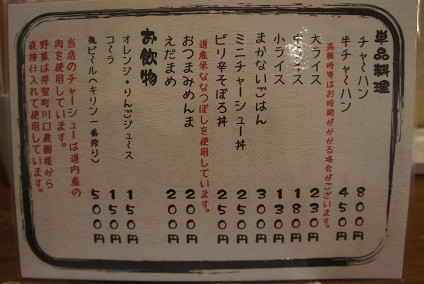 単品料理
チャーハン 800円
半チャーハン 450円
混雑時等はお時間がかかる場合がございます。
大ライス 230円
中ライス 180円
小ライス 130円
まかないごはん 300円
ミニチャーシュー丼 250円
ピリ辛そぼろ丼 250円
道産米ななつぼしを使用しています。
おつまみめんま 200円
えだまめ 200円
お飲物
オレンジ・りんごジュース 150円
コーラ 150円
瓶ビール(キリン一番搾り) 500円
当店のチャーシューは道内産の
肉を使用しています。
野菜は芽室町川口農園様から
直接仕入れて使用しています。